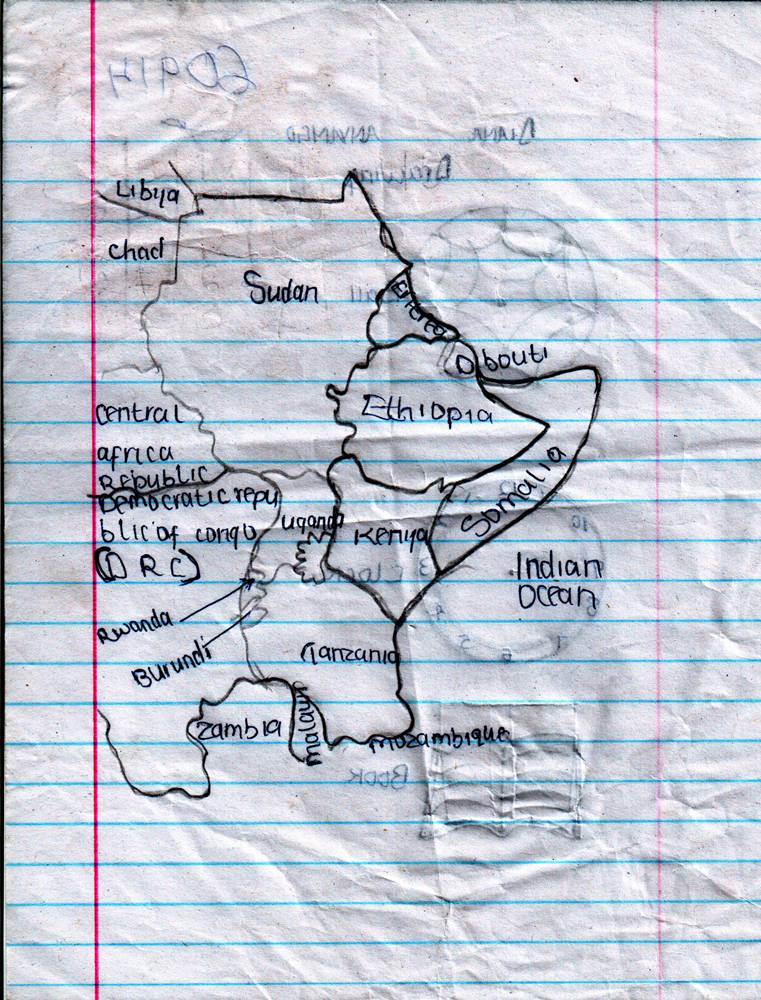 Libya
Chad
Sudan
Eriterea
Dibouti
Ethiopia
central
africa
Republic
Democratic repu
blic of congo
(D R C)
uganda
Kenya
Somalia
Indian
Ocean
Rwanda
Burundi
Tanzania
Zambia
malawi
mozambique